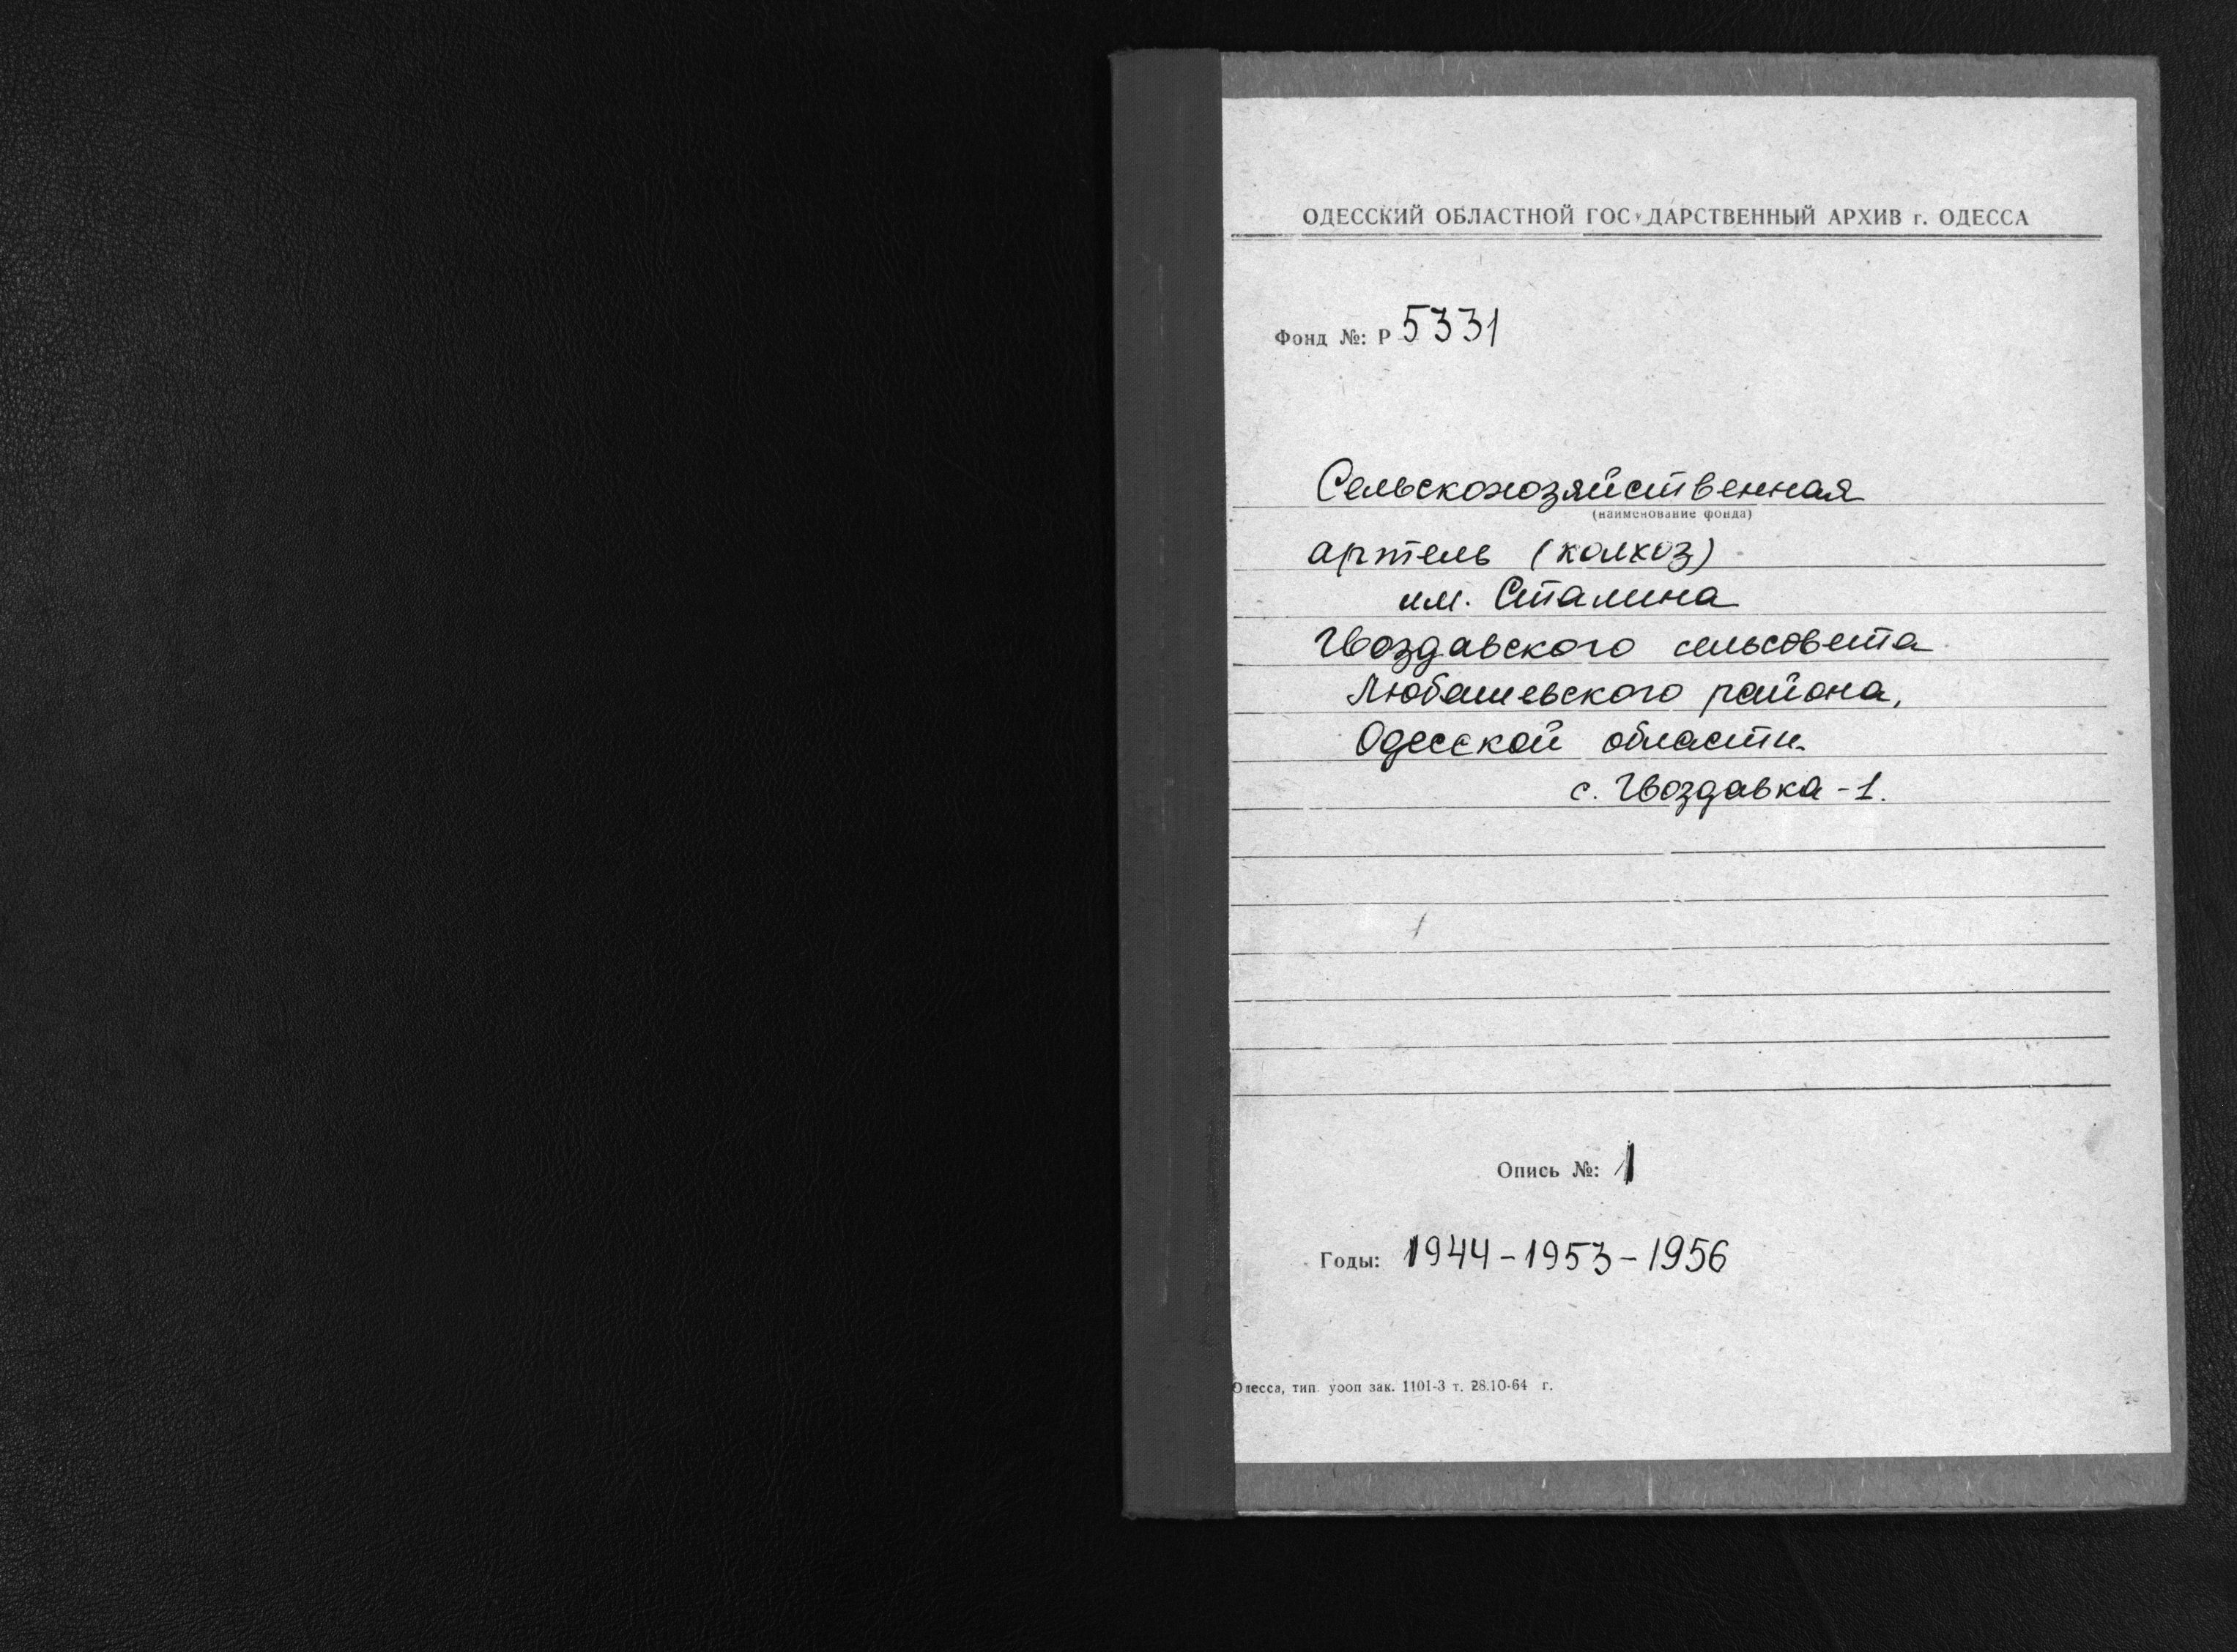 ОДЕССКИЙ ОБЛАСТНОЙ ГОСУДАРСТВЕННЫЙ АРХИВ г. ОДЕССА
Фонд №: Р 5331
Сельскохозяйственная
(наименование фонда)
артель (колхоз)
им. Сталина
Гвоздавского сельсовета
Любашевского района,
Одесской области.
с. Гвоздавка-1.
Опись №: 1
Годы: 1944-1953-1956
Одесса, тип. уооп зак. 1101-3 т. 28.10-64 г.